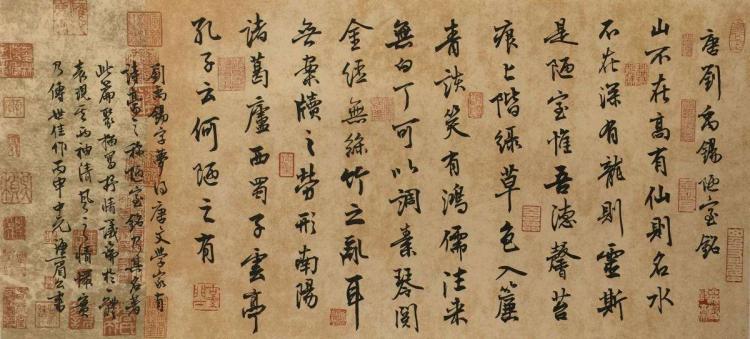 唐劉禹錫陋室銘
山不在高有仙則名水
不在深有龍則靈斯
是陋室惟吾德馨苔
痕上階綠草色入簾
青談笑有鴻儒往來
無白丁可以調素琴閱
金經無絲竹之亂耳
無案牘之勞形南陽
諸葛廬西蜀子雲亭
孔子云何陋之有
劉禹錫字夢得唐文學家有
詩豪之稱陋室銘乃其名著
此篇聚描寫抒情議論於一體
表現 清風 之情操實
乃傳世佳作丙申中元 書